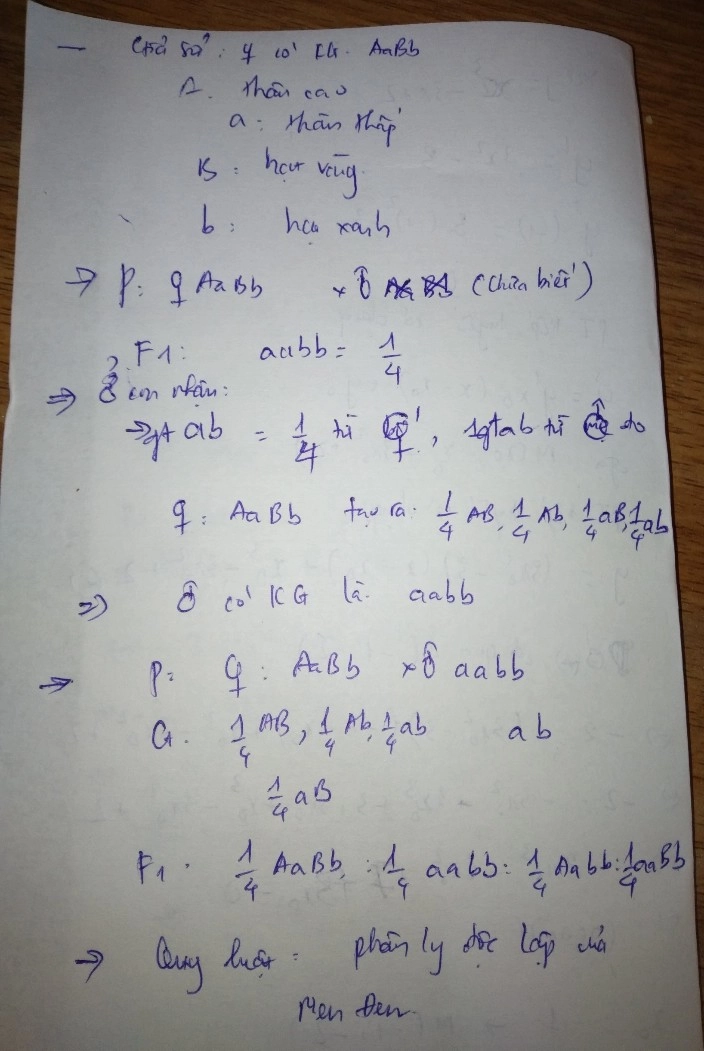 — Giả sử: ♀ có KG. AaBb
A. thân cao
a: thân thấp
B: hạt vàng.
b: hạt xanh
→ P: ♀ AaBb × ♂ (chưa biết)
F1: aabb = 1/4
⇒ ♂ con nhận:
→ gt ab = 1/4 từ ♀, 1 gt ab từ ♂ do
♀: AaBb tạo ra: 1/4 AB, 1/4 Ab, 1/4 aB, 1/4 ab
⇒ ♂ có KG là: aabb
→ P: ♀: AaBb × ♂ aabb
G. 1/4 AB, 1/4 Ab, 1/4 ab ab
1/4 aB
F1. 1/4 AaBb, : 1/4 aabb : 1/4 Aabb : 1/4 aaBb
→ Quy luật: phân ly độc lập của
Men Đen.